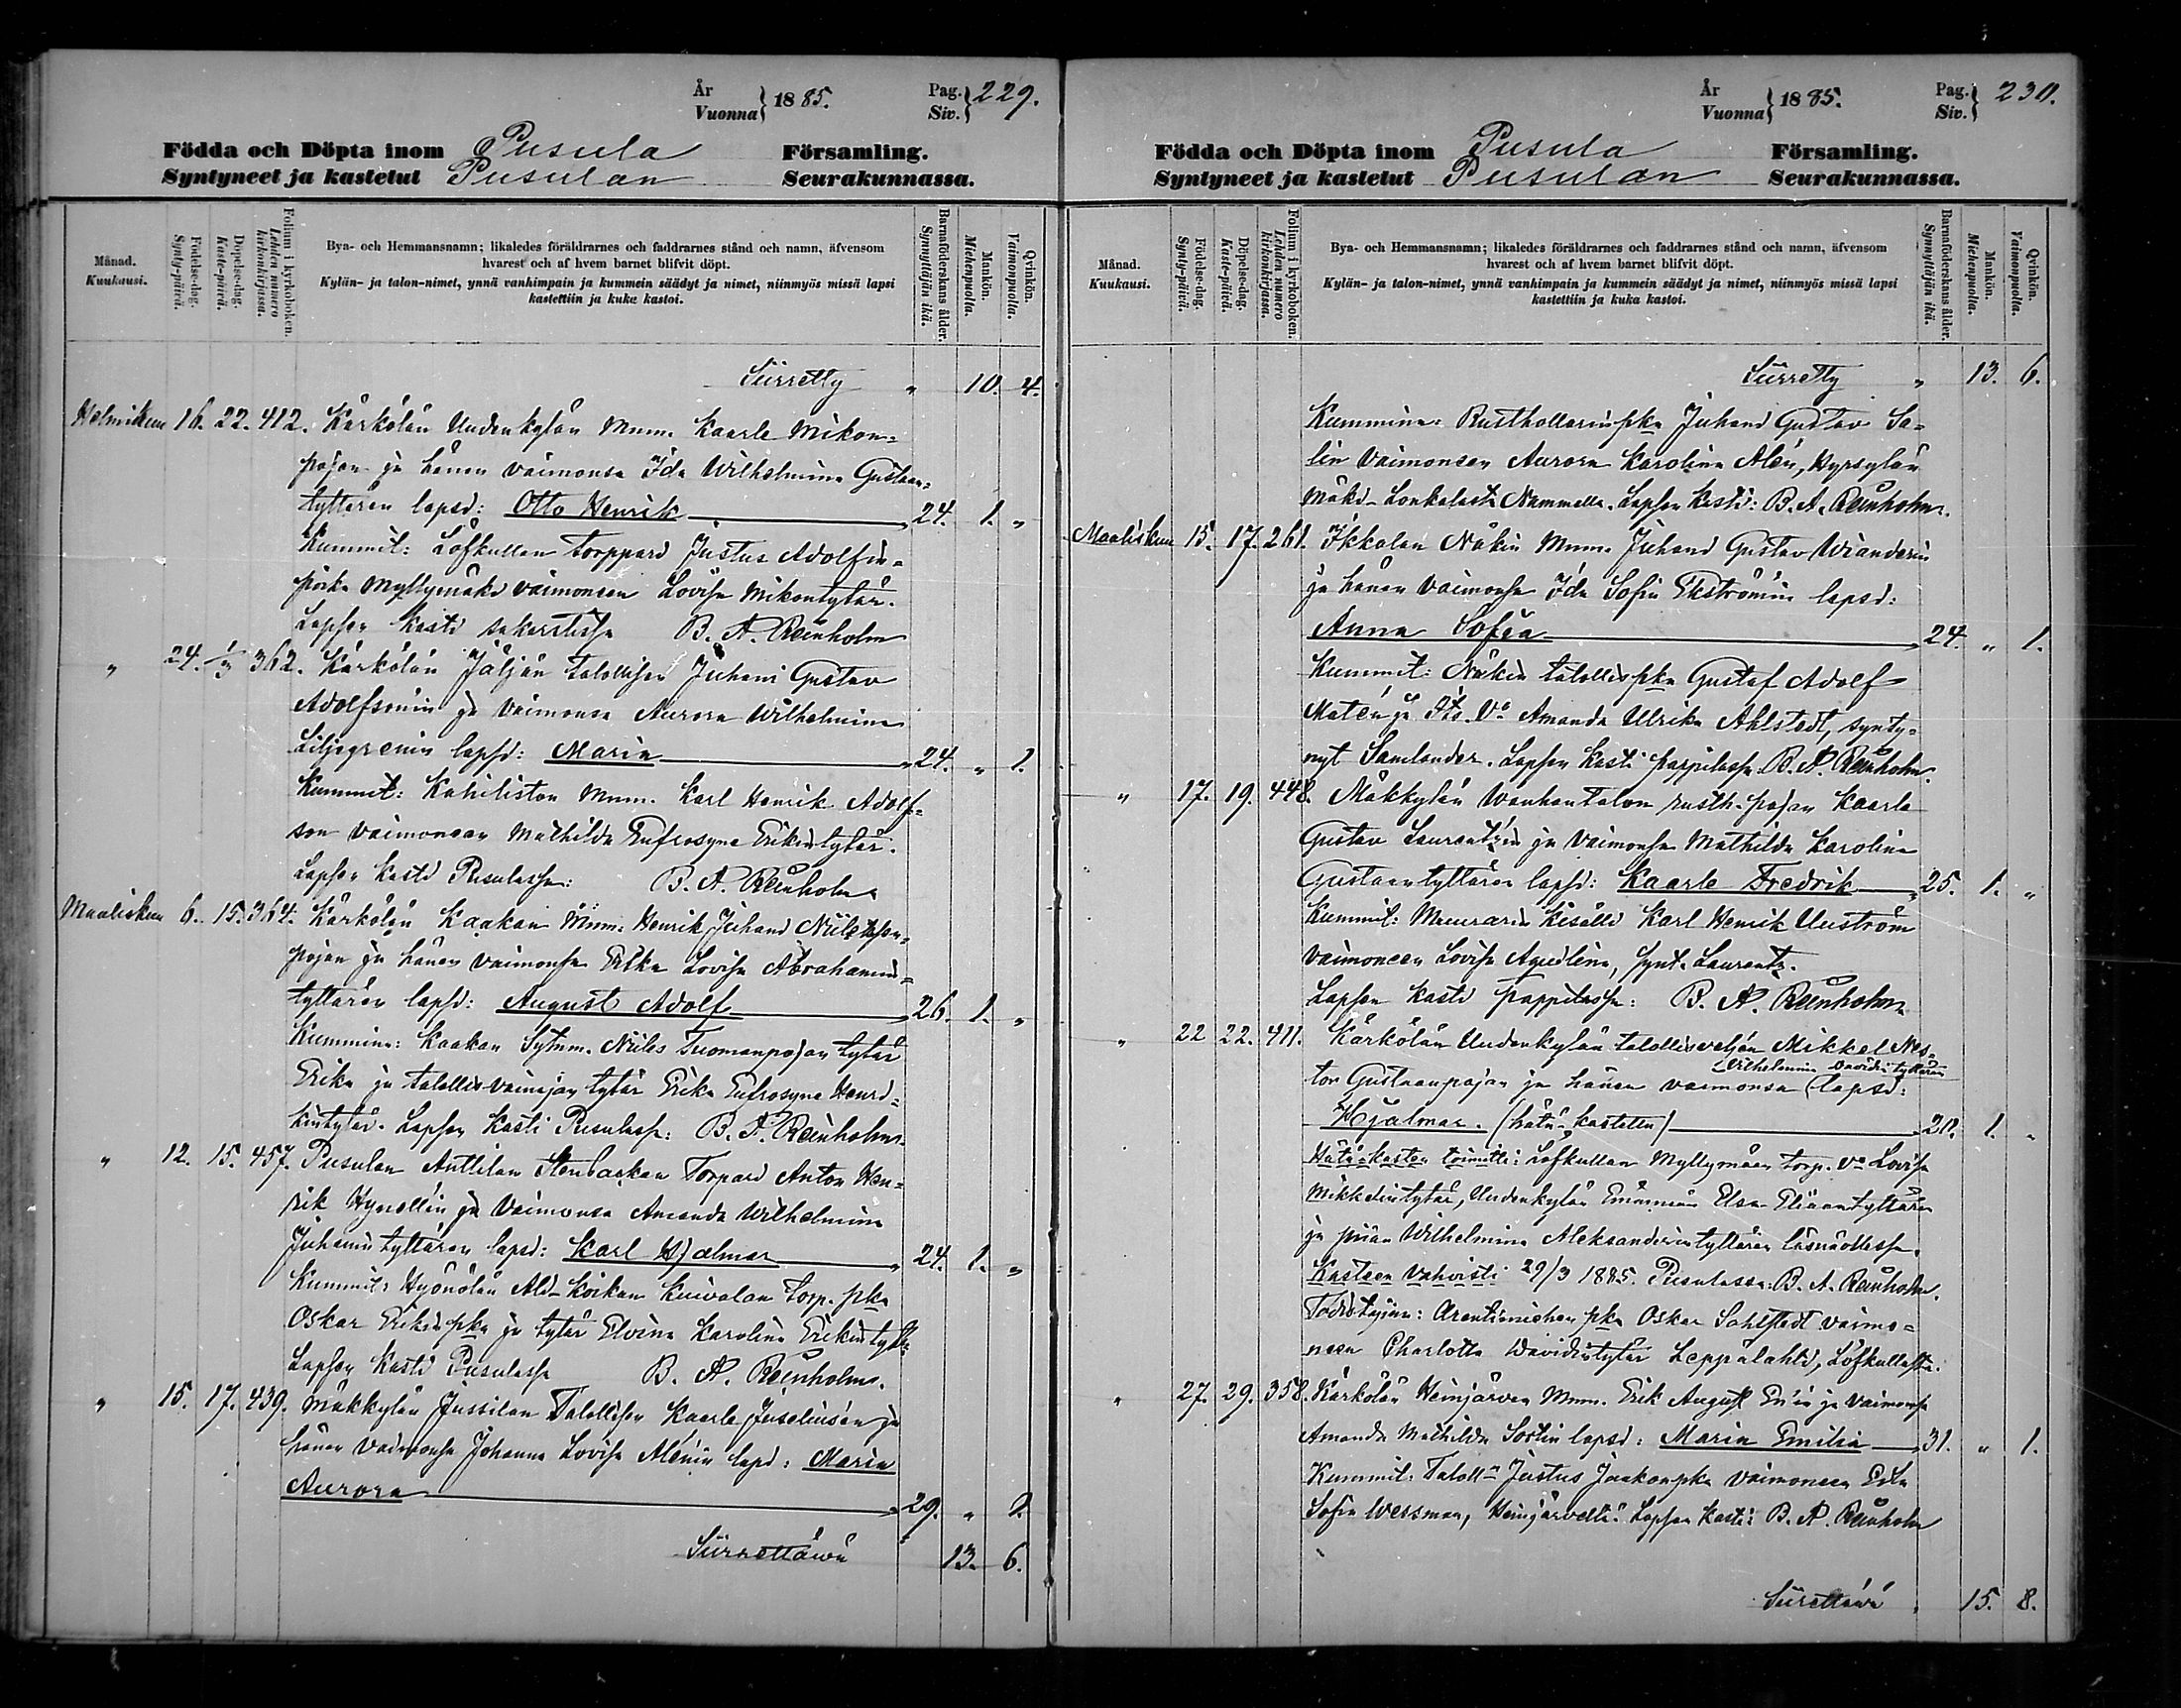 År
Vuonna } 1885. Pag.
Siv. } 229.
Födda och Döpta inom Pusula Församling.
Syntyneet ja kastetut Pusulan Seurakunnassa.
Månad.
Kuukausi.
Födelse-dag.
Synty-päivä.
Döpelse-dag.
Kaste-päivä.
Folium i kyrkoboken.
Lehden numero kirkonkirjassa.
Bya- och Hemmansnamn; likaledes föräldrarnes och faddrarnes stånd och namn, äfvensom
hvarest och af hvem barnet blifvit döpt.
Kylän- ja talon-nimet, ynnä vanhimpain ja kummein säädyt ja nimet, niinmyös missä lapsi
kastettiin ja kuka kastoi.
Barnaföderskans ålder.
Synnyttäjän ikä.
Mankön.
Miehenpuolta.
Qvinkön.
Vaimonpuolta.
Siirretty " 10. 4.
Helmikuu 16. 22. 412. Kärkölän Uudenkylän Mnm. Kaarle Mikon=
pojan ja hänen vaimonsa Ida Wilhelmina Gustaan=
tyttären lapsi: Otto Henrik 24. 1. "
Kummit: Löfkullan torppari Justus Adolfin=
poika Myllymäki vaimonsa Lovisa Mikontytär.
Lapsen kasti sakaristissa B. A. Reinholm
" 24. 1/3 362. Kärkölän Jäljän talollisen Juhani Gustav
Adolfsonin ja vaimonsa Aurora Wilhelmina
Liljegrenin lapsi: Maria 24. " 1.
Kummit: Kahiliston Mnm. Karl Henrik Adolf=
son vaimoneen Mathilda Eufrosyne Erikintytär.
Lapsen kasti Pusulassa: B. A. Reinholm
Maaliskuu 6. 15. 364. Kärkölän Kaakan Mnm. Henrik Juhana
pojan ja hänen vaimonsa Erika Lovisa Abrahamin=
tyttären lapsi: August Adolf 26. 1. "
Kummina: Kaakan Sytnm. Niilo Tuomanpojan tytär
Erika ja talollisvainajan tytär Erika Eufrosyne Henri=
kintytär. Lapsen kasti Pusulassa: B. A. Reinholm
" 12. 15. 457. Pusulan Anttilan Stenbackan Torpari Anton Hen=
rik Hynellin ja vaimonsa Amanda Wilhelmina
Juhanintyttären lapsi: Karl Hjalmar 24. 1. "
Kummit: Hyönölän Ali-Koikan Kuivalan torp. pka
Oskar Erikinpka ja tytär Elvina Karolina Erikintytt.
Lapsen kasti Pusulassa B. A. Reinholm.
" 15. 17. 439. Mäkkylän Jussilan Talollisen Kaarle Juseliusen ja
hänen vaimonsa Johanna Lovisa Alénin lapsi: Maria
Aurora 29. " 2.
Siirrettävä 13. 6.
År
Vuonna } 1885. Pag.
Siv. } 230.
Födda och Döpta inom Pusula Församling.
Syntyneet ja kastetut Pusulan Seurakunnassa.
Månad.
Kuukausi.
Födelse-dag.
Synty-päivä.
Döpelse-dag.
Kaste-päivä.
Folium i kyrkoboken.
Lehden numero kirkonkirjassa.
Bya- och Hemmansnamn; likaledes föräldrarnes och faddrarnes stånd och namn, äfvensom
hvarest och af hvem barnet blifvit döpt.
Kylän- ja talon-nimet, ynnä vanhimpain ja kummein säädyt ja nimet, niinmyös missä lapsi
kastettiin ja kuka kastoi.
Barnaföderskans ålder.
Synnyttäjän ikä.
Mankön.
Miehenpuolta.
Qvinkön.
Vaimonpuolta.
Siirretty " 13. 6.
Kummina: Rusthollarinpka Juhana Gustav Sa=
lin vaimonsen Aurora Karolina Alén, Hyrsylän
Mäki-Lonkalasta Nummella. Lapsen kasti: B. A. Reinholm.
Maaliskuu 15. 17. 261. Ikkalan Näkin Mnm. Juhana Gustav Wianderin
ja hänen vaimonsa Ida Sofia Ekströmin lapsi:
Anna Sofia 24. " 1.
Kummit: Näkin talollispka Gustaf Adolf
Matén ja Its. Va Amanda Ulrika Ahlstedt, synty=
nyt Samlander. Lapsen kasti pappilassa B. A. Reinholm.
" 17. 19. 448. Mäkkylän Wanhantalon rusth. pojan Kaarle
Gustav Laurentzin ja vaimonsa Mathilda Karolina
Gustaantyttären lapsi: Kaarle Fredrik 25. 1. "
Kummit: Muurarin kisälli Karl Henrik Unström
vaimoneen Lovisa Aqvilina, synt. Laurentz.
Lapsen kasti pappilassa: B. A. Reinholm
" 22 22. 411. Kärkölän Uudenkylän talollisveljen Mikkel Nes=
Vilhelmina Davidintyttären
tor Gustaanpojan ja hänen vaimonsa (lapsi:
Hjalmar. (hätä-kastettu) 20. 1. "
Hätä-kasteen toimitti: Löfkullan Myllymäen torp. va Lovisa
Mikkelintytär, Uudenkylän Emännän Elsa Eliaantyttären
ja piian Wilhelmina Aleksanderintyttären läsnäollessa.
Kasteen vahvisti 29/3 1885. Pusulassa: B. A. Reinholm.
Todistajina: Arentimiehen pka Oskar Sahlstedt vaimo=
neen Charlotta Davidintytär Leppälahti, Löfkullasta.
" 27. 29. 358. Kärkölän Heinjärven Mnm. Erik August En'in ja vaimonsa
Amanda Mathilda Sortin lapsi: Maria Emilia 31. " 1.
Kummit: Taloll-n Justus Jaakonpka vaimoneen Eda
Sofia Wessman, Heinjärveltä. Lapsen kasti: B. A. Reinholm
Siirrettävä " 15. 8.